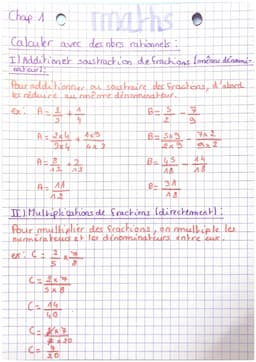 Chap 1 maths
Calculer avec des nbrs rationnels :
I) Additionner soustraction de fractions (même dénomi-
nateur) :
Pour additionner ou soustraire des fractions, d'abord
les réduire au même dénominateur.
ex : A = 2/3 + 1/4 B = 5/2 - 7/9
A = 2x4/3x4 + 1x3/4x3 B = 5x9/2x9 - 7x2/9x2
A = 8/12 + 3/12 B = 45/18 - 14/18
A = 11/12 B = 31/18
II) Multiplications de fractions (directement) :
Pour multiplier des fractions, on multiplie les
numérateurs et les dénominateurs entre eux.
ex : C = 2/5 x 7/8
C = 2x7/5x8
C = 14/40
C = 2x7/2x20
C = 7/20